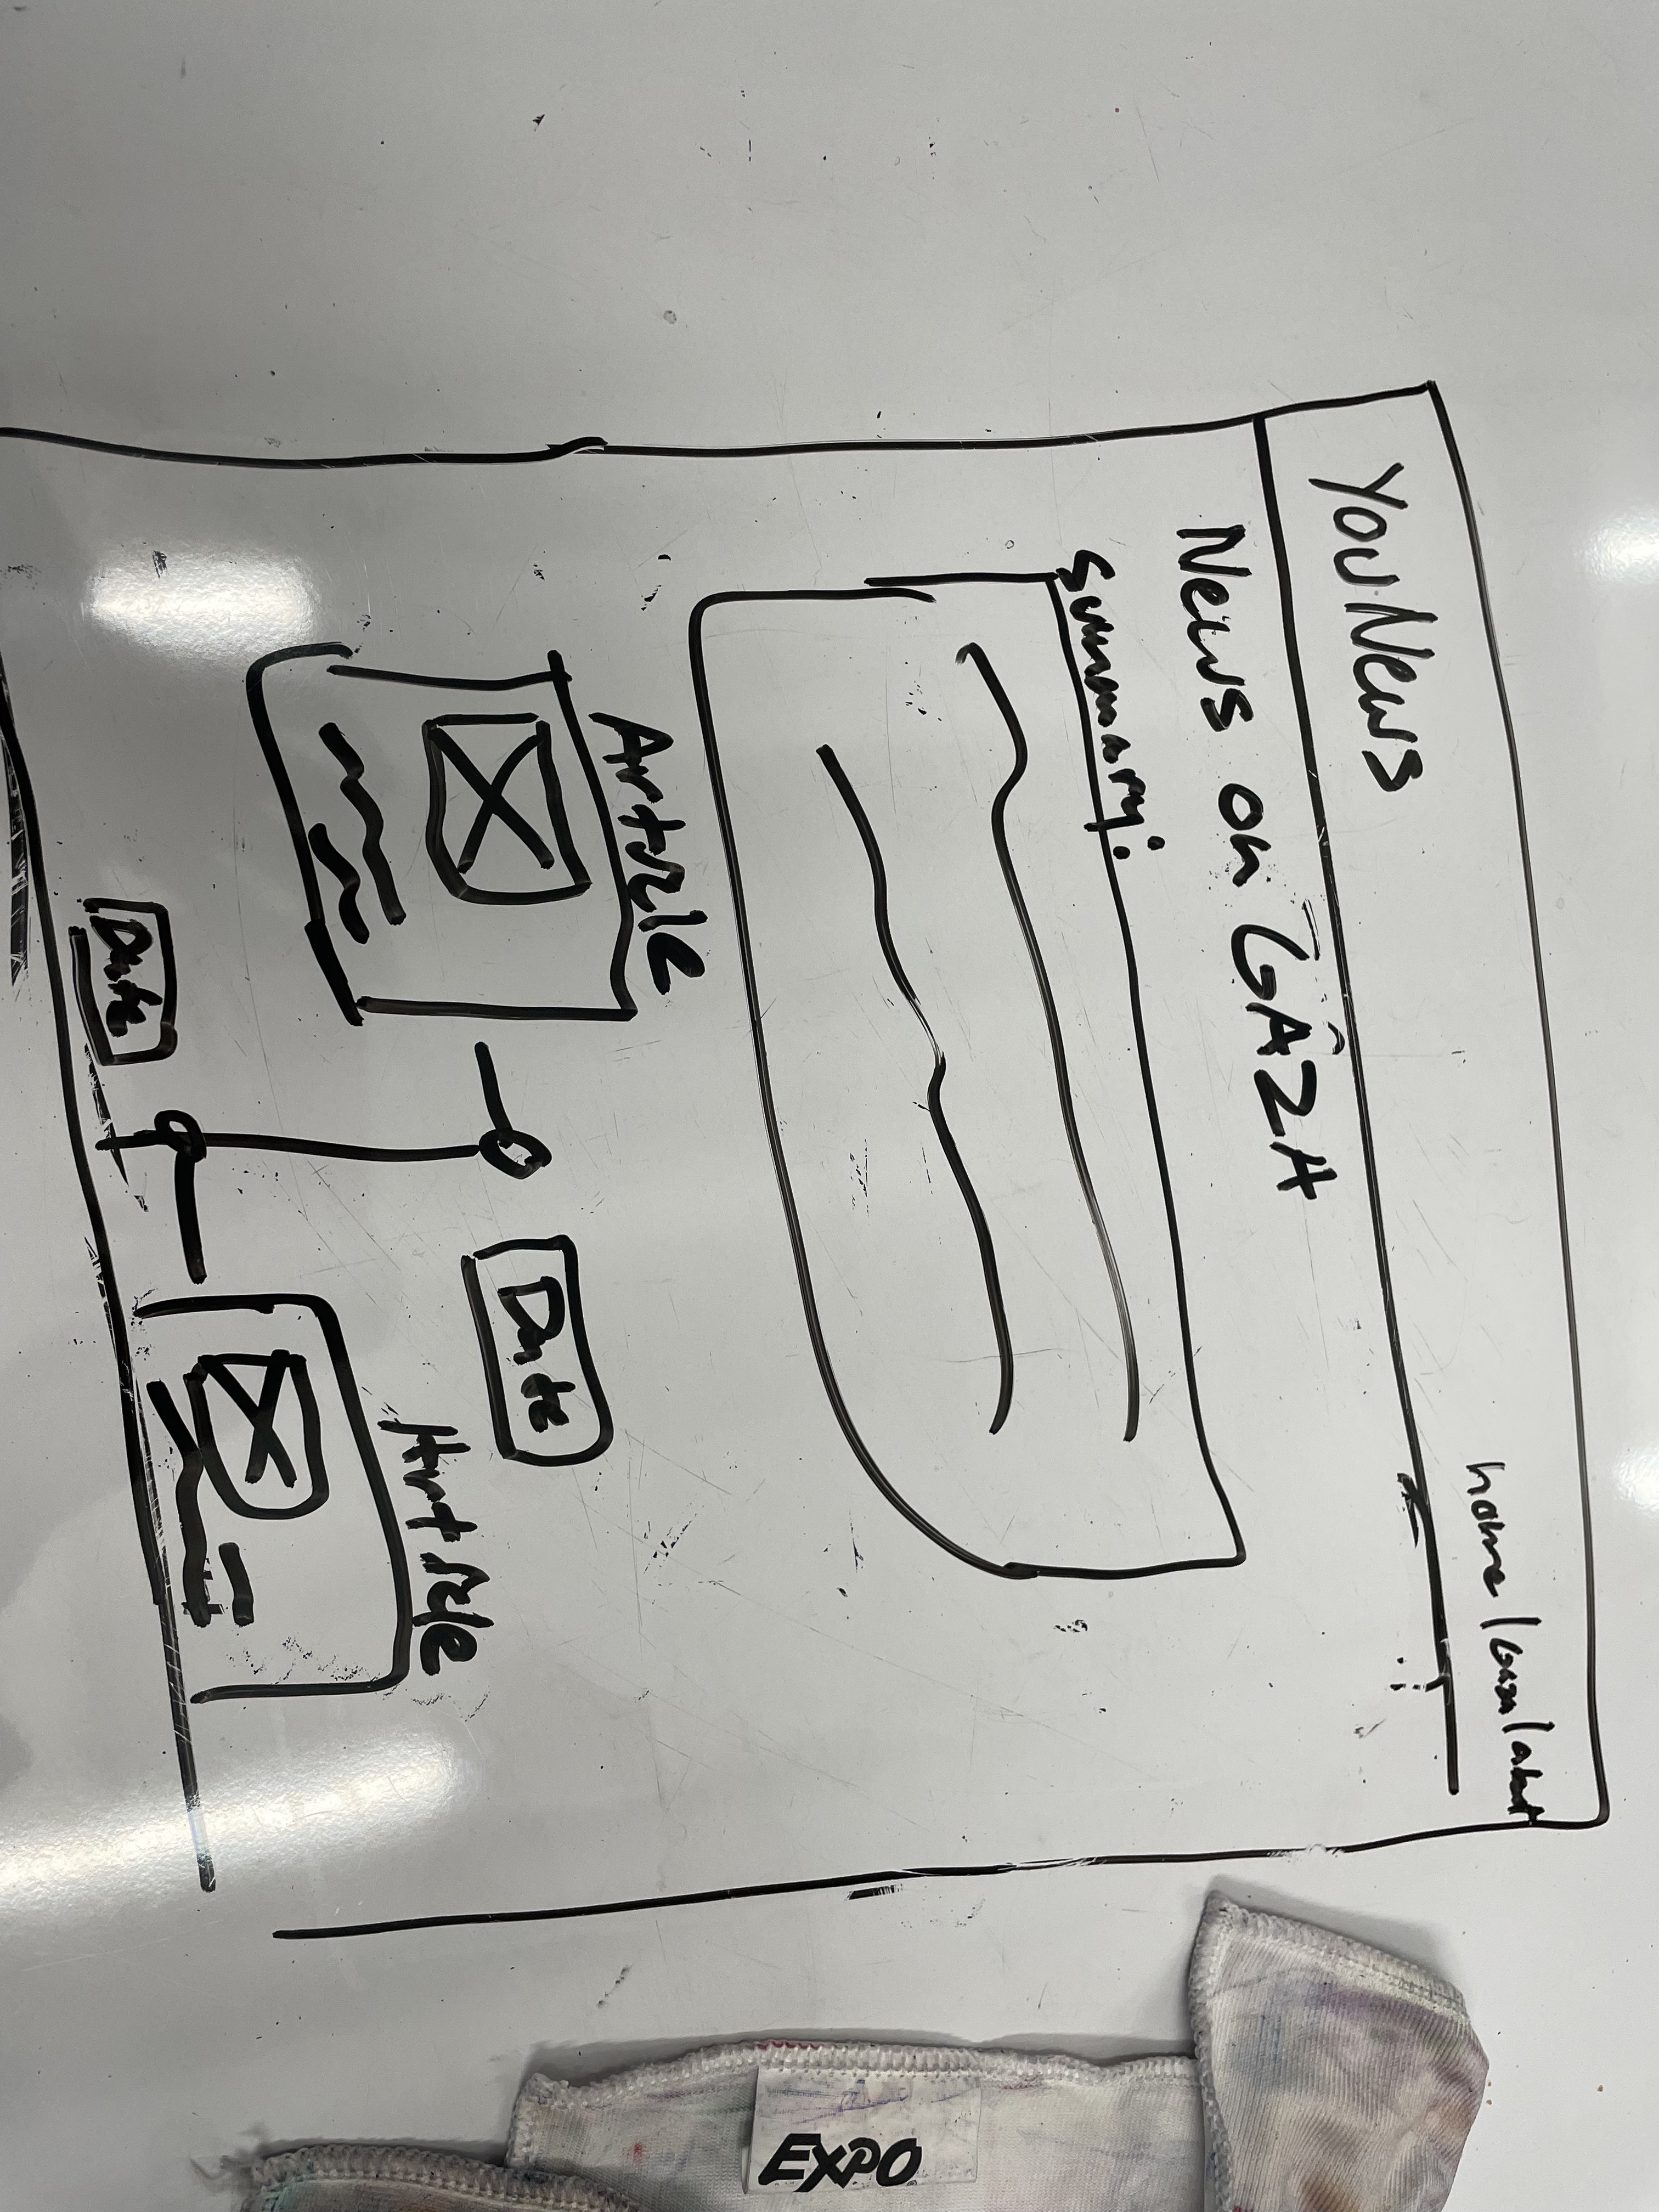 YouNews
home / / about
News on GAZA
Summary:
Article
Date
Article
Date
EXPO